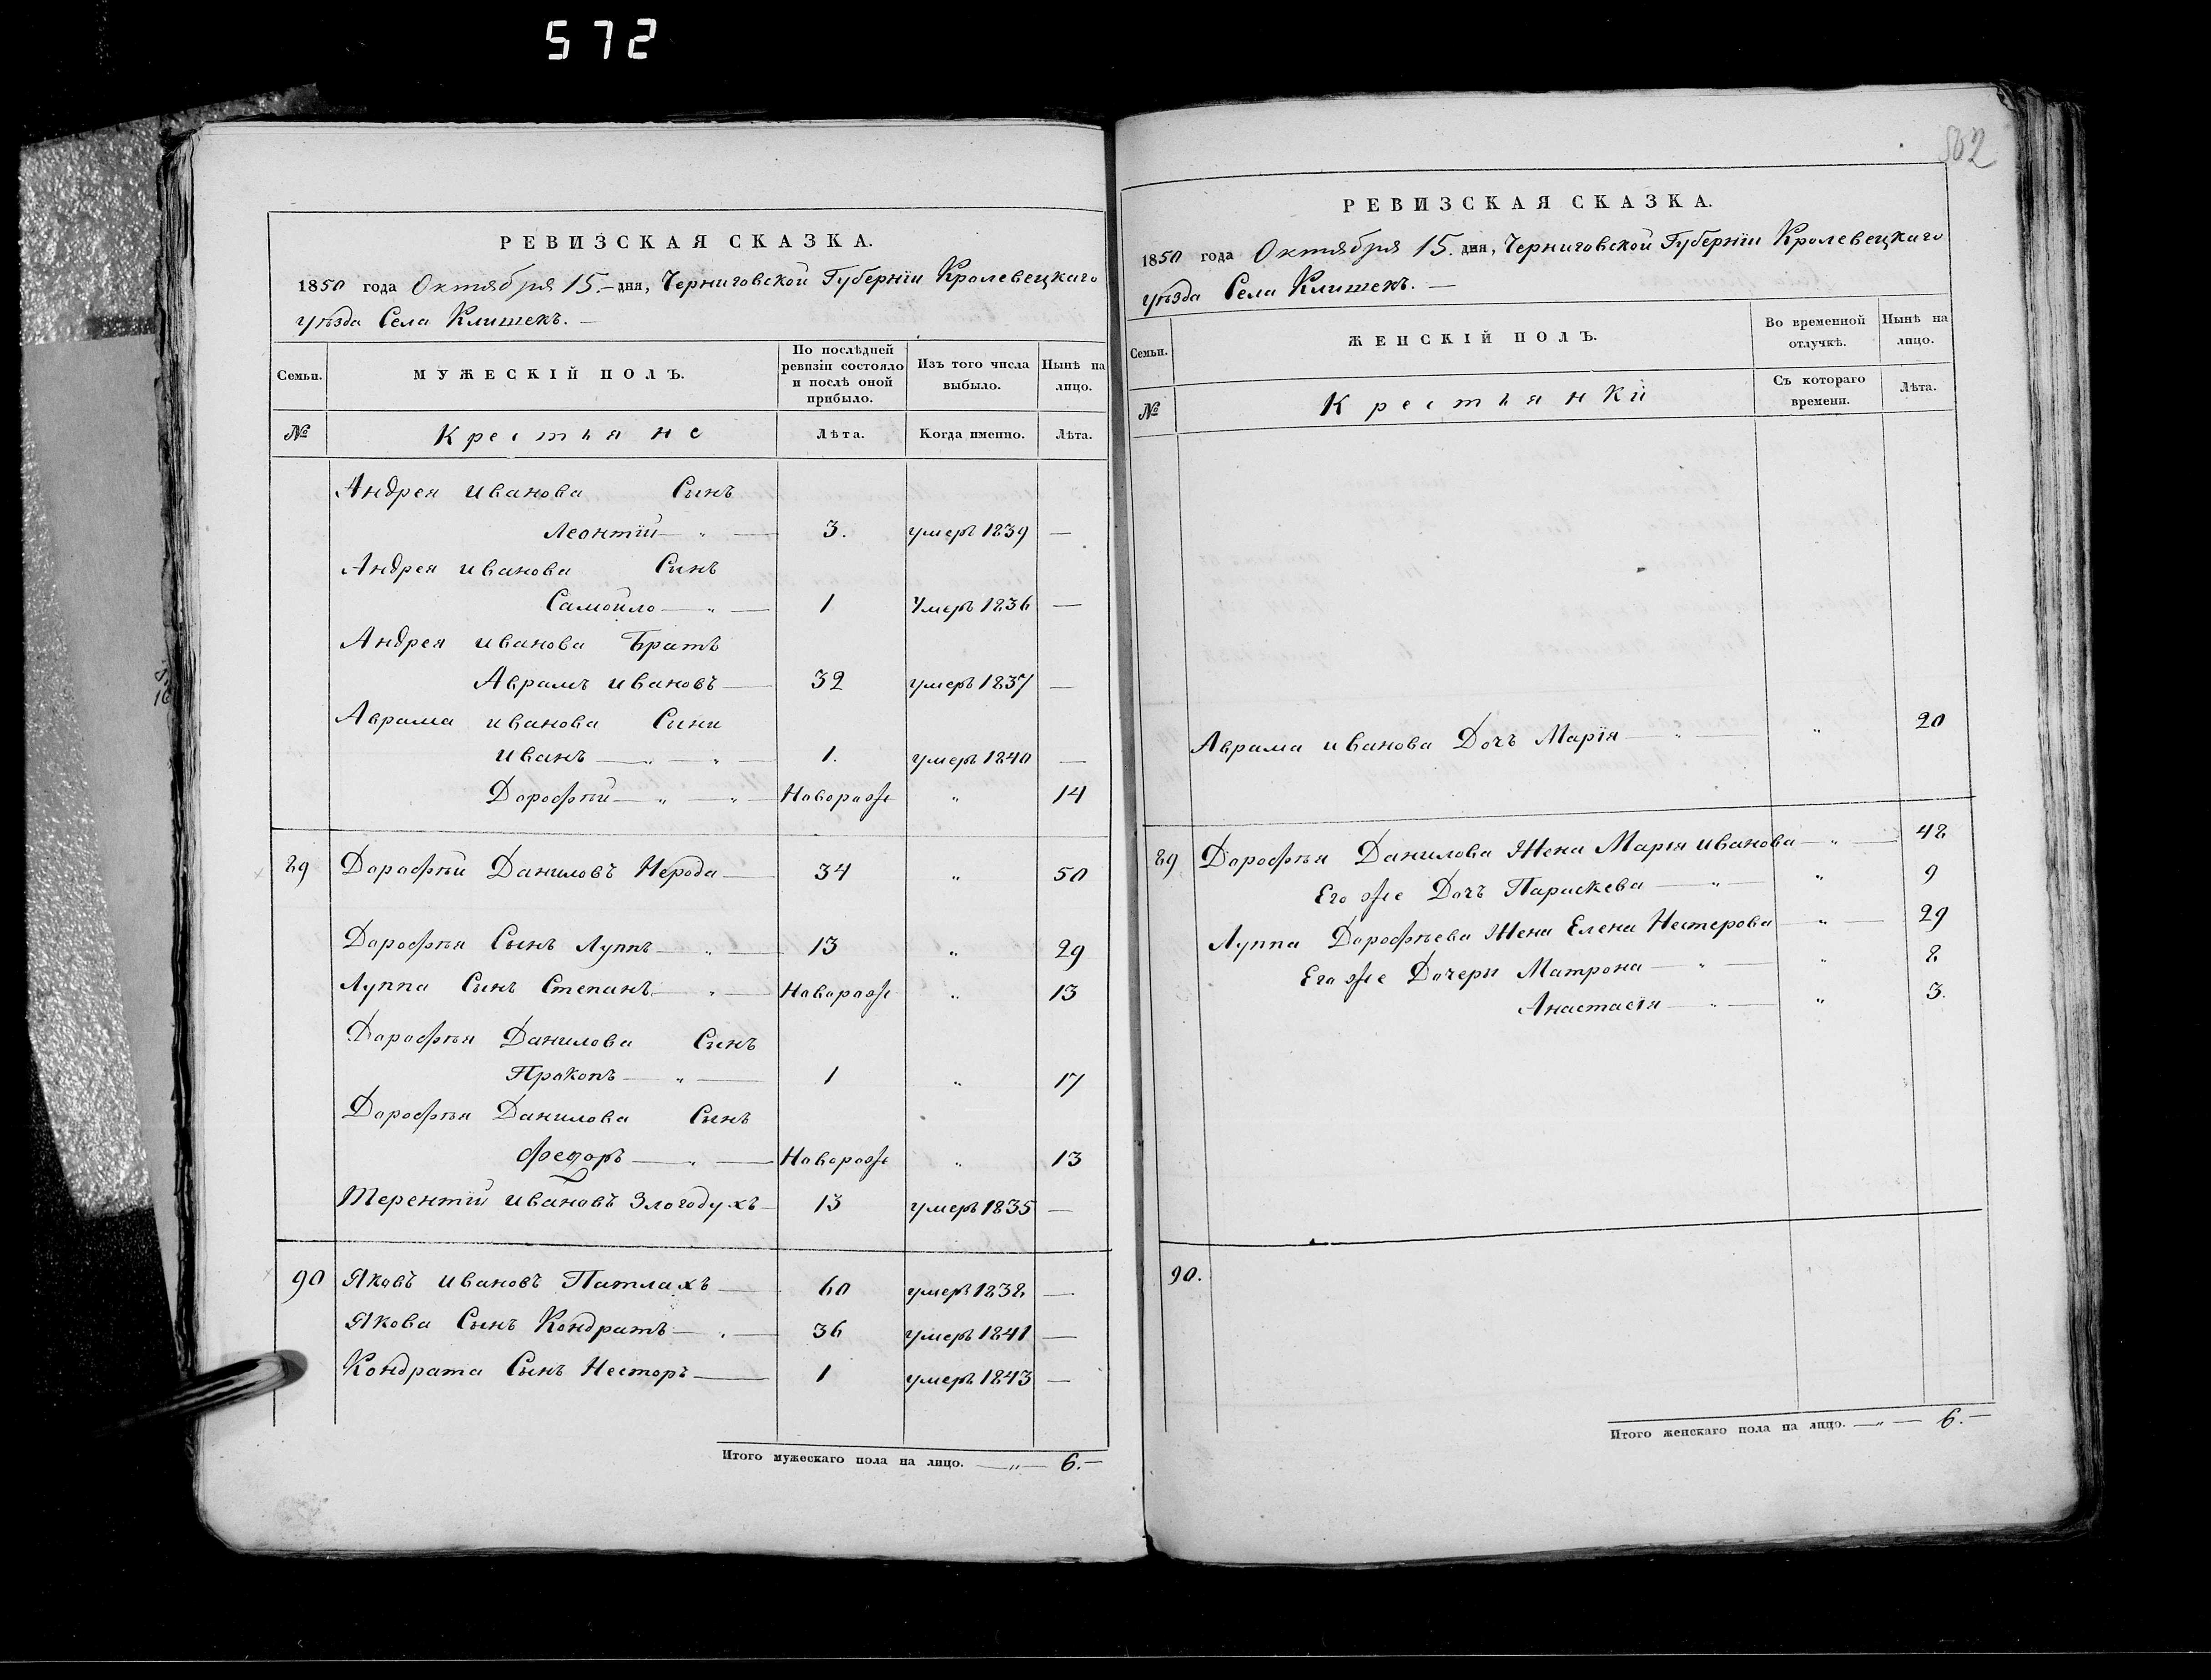 572
РЕВИЗСКАЯ СКАЗКА.
1850 года Октября 15.– дня, Черниговской Губерніи Кролевецкаго
уѣзда Села Клишекъ. —
Семьи.
МУЖЕСКІЙ ПОЛЪ.
По послѣдней ревизіи состояло и послѣ оной прибыло.
Изъ того числа выбыло.
Нынѣ на лицо.
№
Крестьяне
Лѣта.
Когда именно.
Лѣта.
Андрея Иванова Сынъ
Леонтій — „ — 3. умеръ 1839 —
Андрея Иванова Сынъ
Самойло — „ — 1 Умеръ 1836 —
Андрея Иванова Братъ
Аврамъ Ивановъ — 32 умеръ 1837 —
Аврама Иванова Сыни
Иванъ — „ — „ — 1. умеръ 1840 —
Дорофѣй — „ — „ — Новорож „ 14
89 Дорофѣй Даниловъ Нерода — 34 „ 50
Дорофѣя Сынъ Луппъ — „ — 13 „ 29
Луппа Сынъ Степанъ — „ — Новорож „ 13
Дорофѣя Данилова Сынъ
Прокопъ — „ — 1 „ 17
Дорофѣя Данилова Сынъ
Федоръ — „ — Новорож „ 13
Терентій Ивановъ Злогодухъ — 13 умеръ 1835 —
90 Яковъ Ивановъ Патлахъ — 60 умеръ 1838 —
Якова Сынъ Кондратъ — „ — 36 умеръ 1841 —
Кондрата Сынъ Несторъ — 1 умеръ 1843 —
Итого мужескаго пола на лицо. — „ — 6.–
502
РЕВИЗСКАЯ СКАЗКА.
1850 года Октября 15. дня, Черниговской Губерніи Кролевецкаго
уѣзда Села Клишекъ. —
Семьи.
ЖЕНСКІЙ ПОЛЪ.
Во временной отлучкѣ.
Нынѣ на лицо.
№
Крестьянки
Съ котораго времени.
Лѣта.
Аврама Иванова Дочъ Марія — „ — „ 20
89 Дорофѣя Данилова Жена Марія Иванова — „ — 48
Его же Дочъ Параскева — „ — „ 9
Луппа Дорофѣева Жена Елена Нестерова „ — 29
Его же Дочери Матрона — „ — „ 8
Анастасія — „ — „ 3.
90.
Итого женскаго пола на лицо. — „ — 6.–